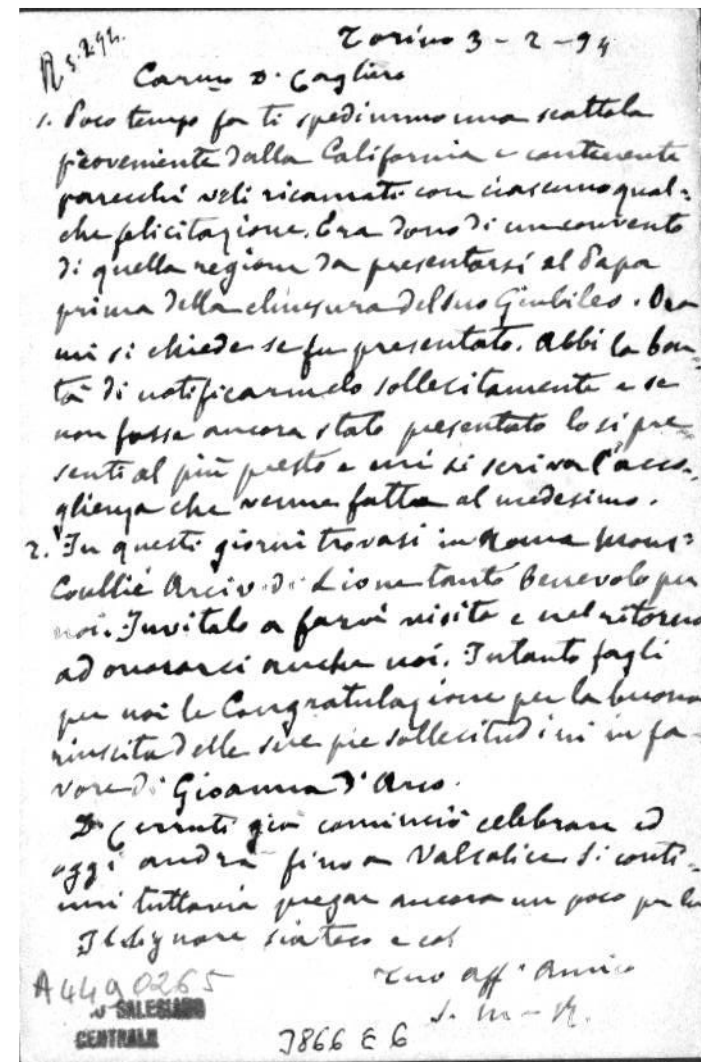 R 5.2.94.
Torino 3-2-94
Carmo D. Cagliero
1. Poco tempo fa ti spedimmo una scattola
proveniente dalla California e contenente
parecchi veli ricamati con ciascuno qual=
che felicitazione. Era dono di un convento
di quella regione da presentarsi al Papa
prima della chiusura del suo Giubileo. Ora
mi si chiede se fu presentato. Abbi la bon-
tà di notificarmelo sollecitamente e se
non fosse ancora stato presentato lo si pre-
senti al più presto e mi si scriva l'acco-
glienza che venne fatta al medesimo.
2. In questi giorni trovasi in Roma Mons=
Coullié Arciv. di Lione tanto benevolo per
noi. Invitalo a farvi visita e nel ritorno
ad onorarci anche noi. Intanto fagli
per noi le Congratulazione per la buona
riuscita delle sue pie sollecitudini in fa-
vore di Gioanna d'Arco.
D. Cerruti già cominciò celebrare ed
oggi andrà fino a Valsalice. Si conti-
nui tuttavia pregar ancora un poco per lui
Il Signore sia teco e col
tuo aff. Amico
S. M-R.
A4490265
SALESIANO
CENTRALE
3866 E 6